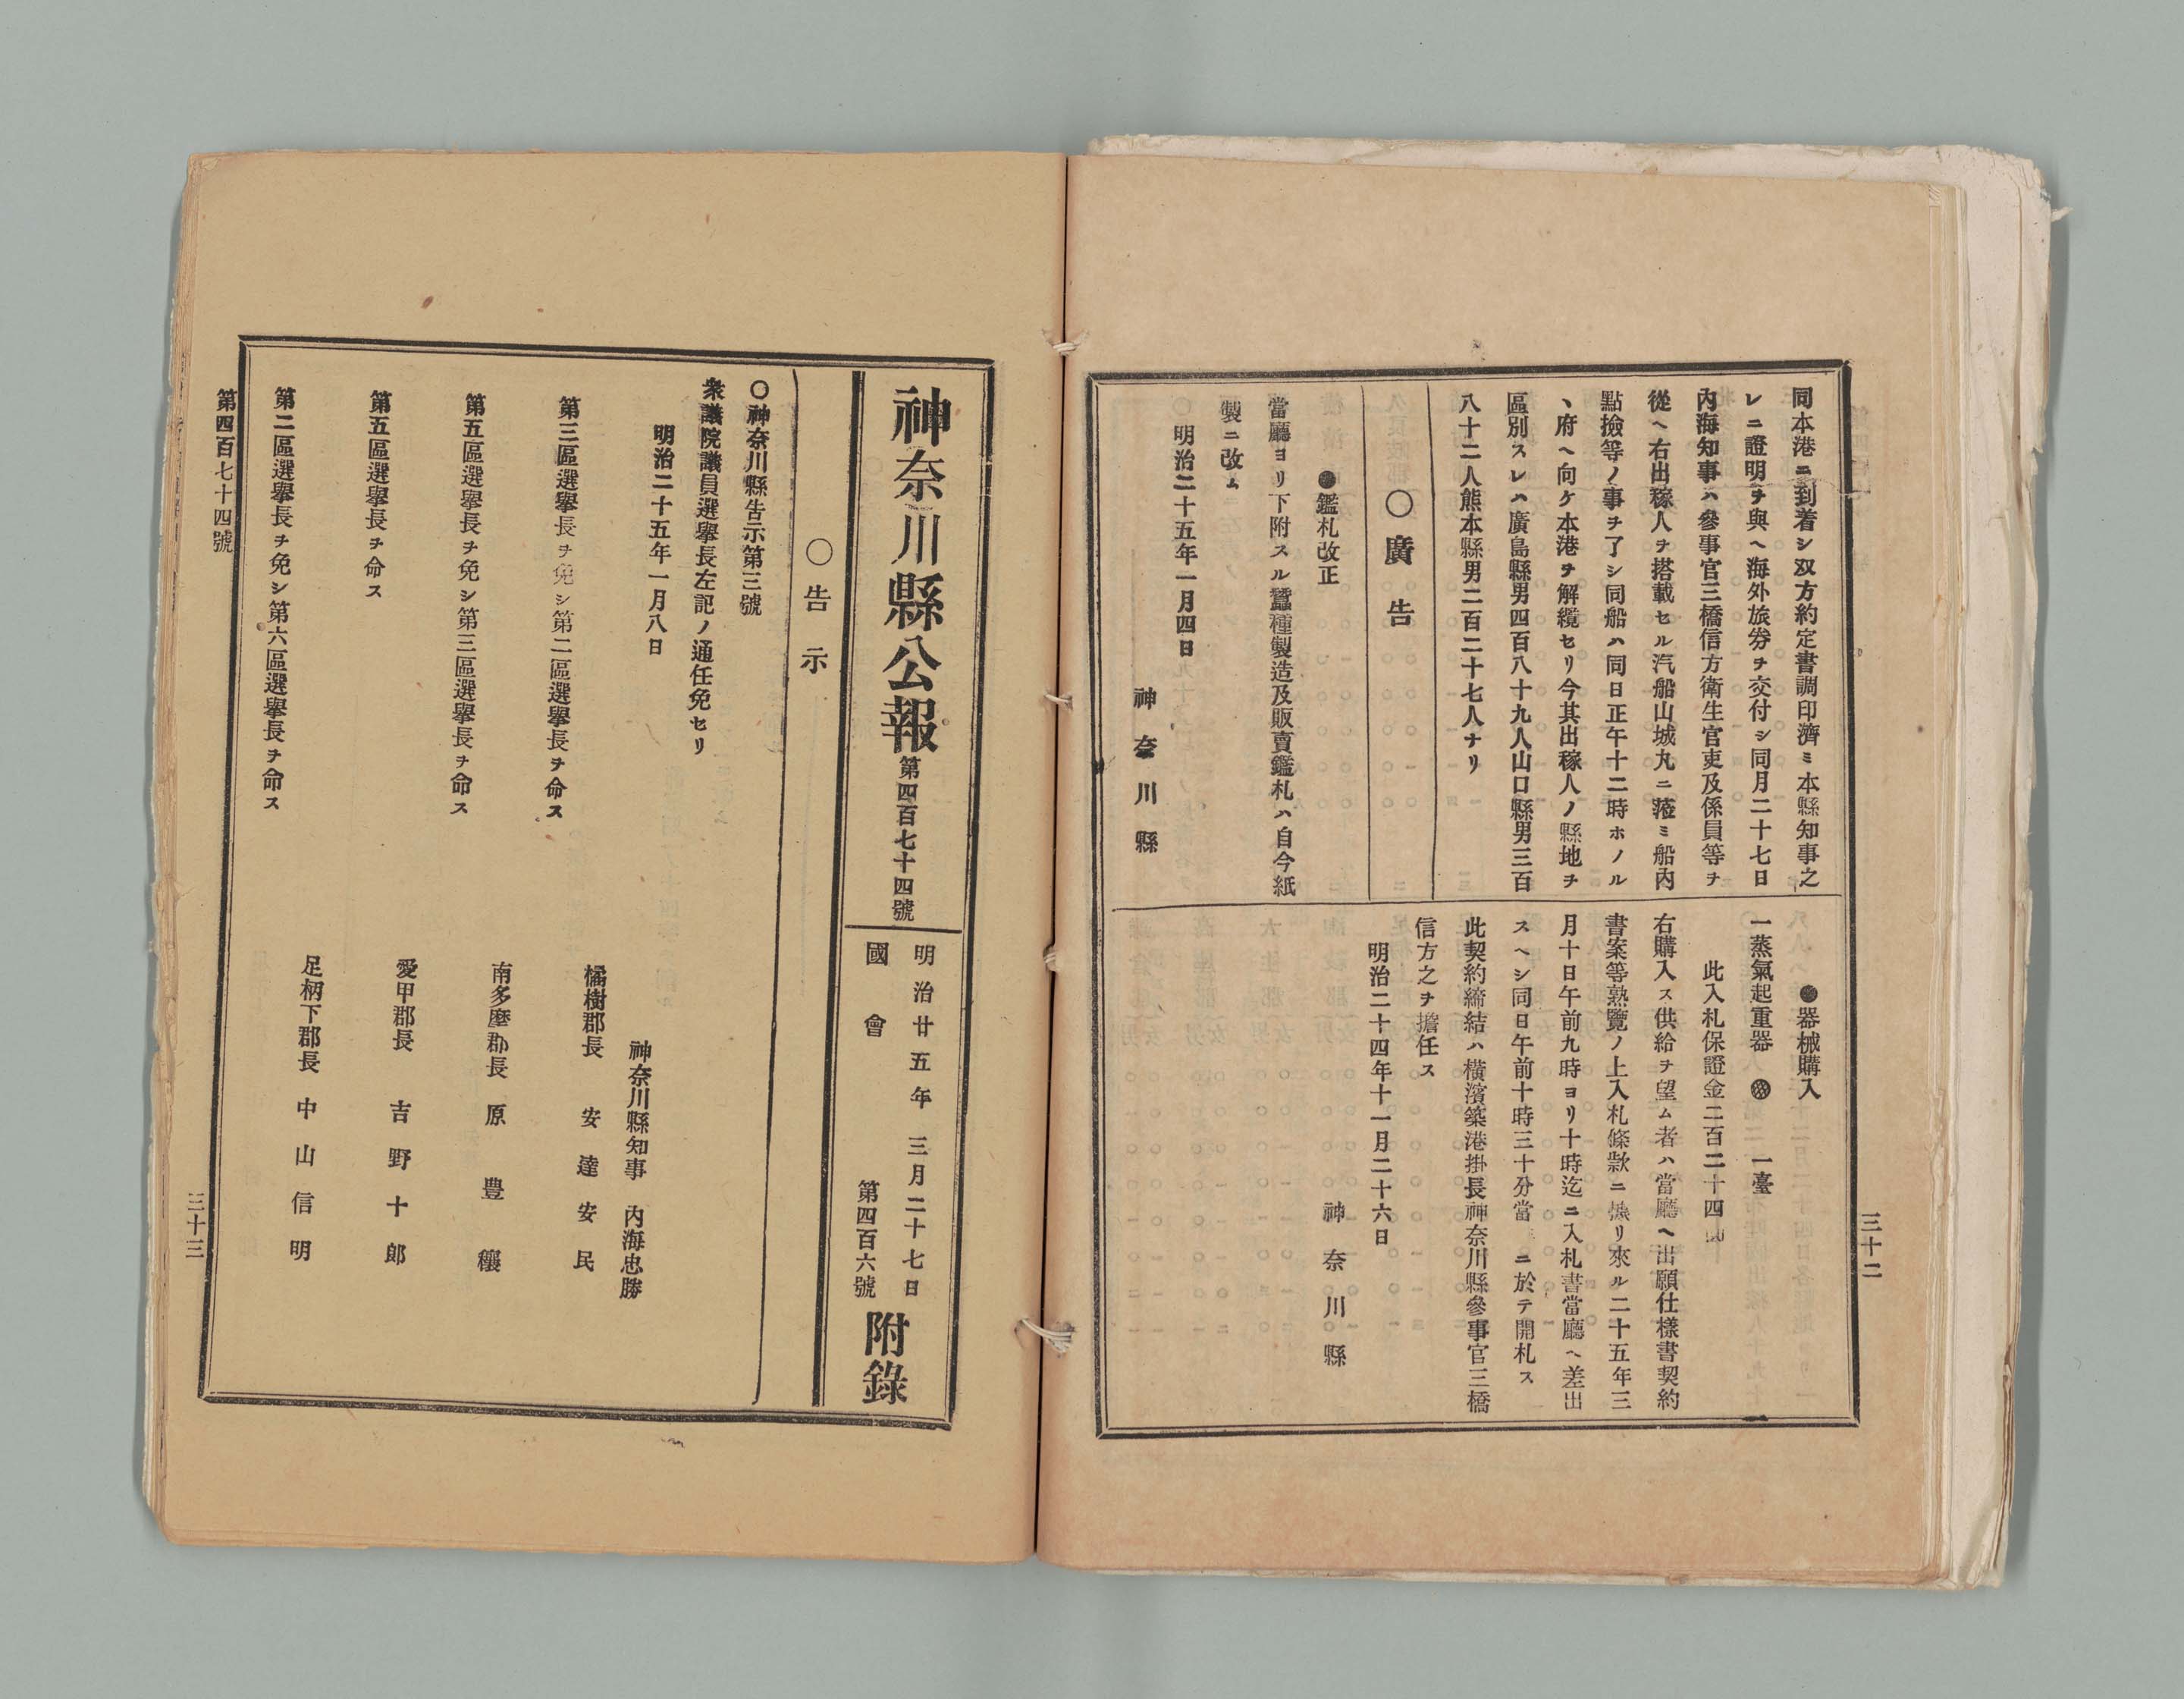 三十二
同本港ニ到着シ双方約定書調印濟ミ本縣知事之
レニ證明ヲ與ヘ海外旅劵ヲ交付シ同月二十七日
內海知事ハ參事官三橋信方衛生官吏及係員等ヲ
從ヘ右出稼人ヲ搭載セル汽船山城丸ニ蒞ミ船內
點撿等ノ事ヲ了シ同船ハ同日正午十二時ホノル
ヽ府ヘ向ケ本港ヲ解纜セリ今其出稼人ノ縣地ヲ
區別スレハ廣島縣男四百八十九人山口縣男三百
八十二人熊本縣男二百二十七人ナリ
〇廣告
●鑑札改正
當廳ヨリ下附スル蠶種製造及販賣鑑札ハ自今紙
製ニ改ム
明治二十五年一月四日
神奈川縣
●器械購入
一蒸氣起重器 一臺
此入札保證金二百二十四
右購入ス供給ヲ望ム者ハ當廳ヘ出願仕樣書契約
書案等熟覽ノ上入札條款ニ リ來ル二十五年三
月十日午前九時ヨリ十時迄ニ入札書當廳ヘ差出
スヘシ同日午前十時三十分當 ニ於テ開札ス
此契約締結ハ橫濱築港掛長神奈川縣參事官三橋
信方之ヲ擔任ス
明治二十四年十一月二十六日
神奈川縣
神奈川縣公報第四百七十四號
明治廿五年三月二十七日
國會第四百六號
附錄
〇告示
〇神奈川縣告示第三號
衆議院議員選擧長左記ノ通任免セリ
明治二十五年一月八日
神奈川縣知事 內海忠勝
橘樹郡長 安達安民
第三區選擧長ヲ免シ第二區選擧長ヲ命ス
南多摩郡長 原豊穰
第五區選擧長ヲ免シ第三區選擧長ヲ命ス
愛甲郡長 吉野十郎
第五區選擧長ヲ命ス
足柄下郡長 中山信明
第二區選擧長ヲ免シ第六區選擧長ヲ命ス
第四百七十四號
三十三